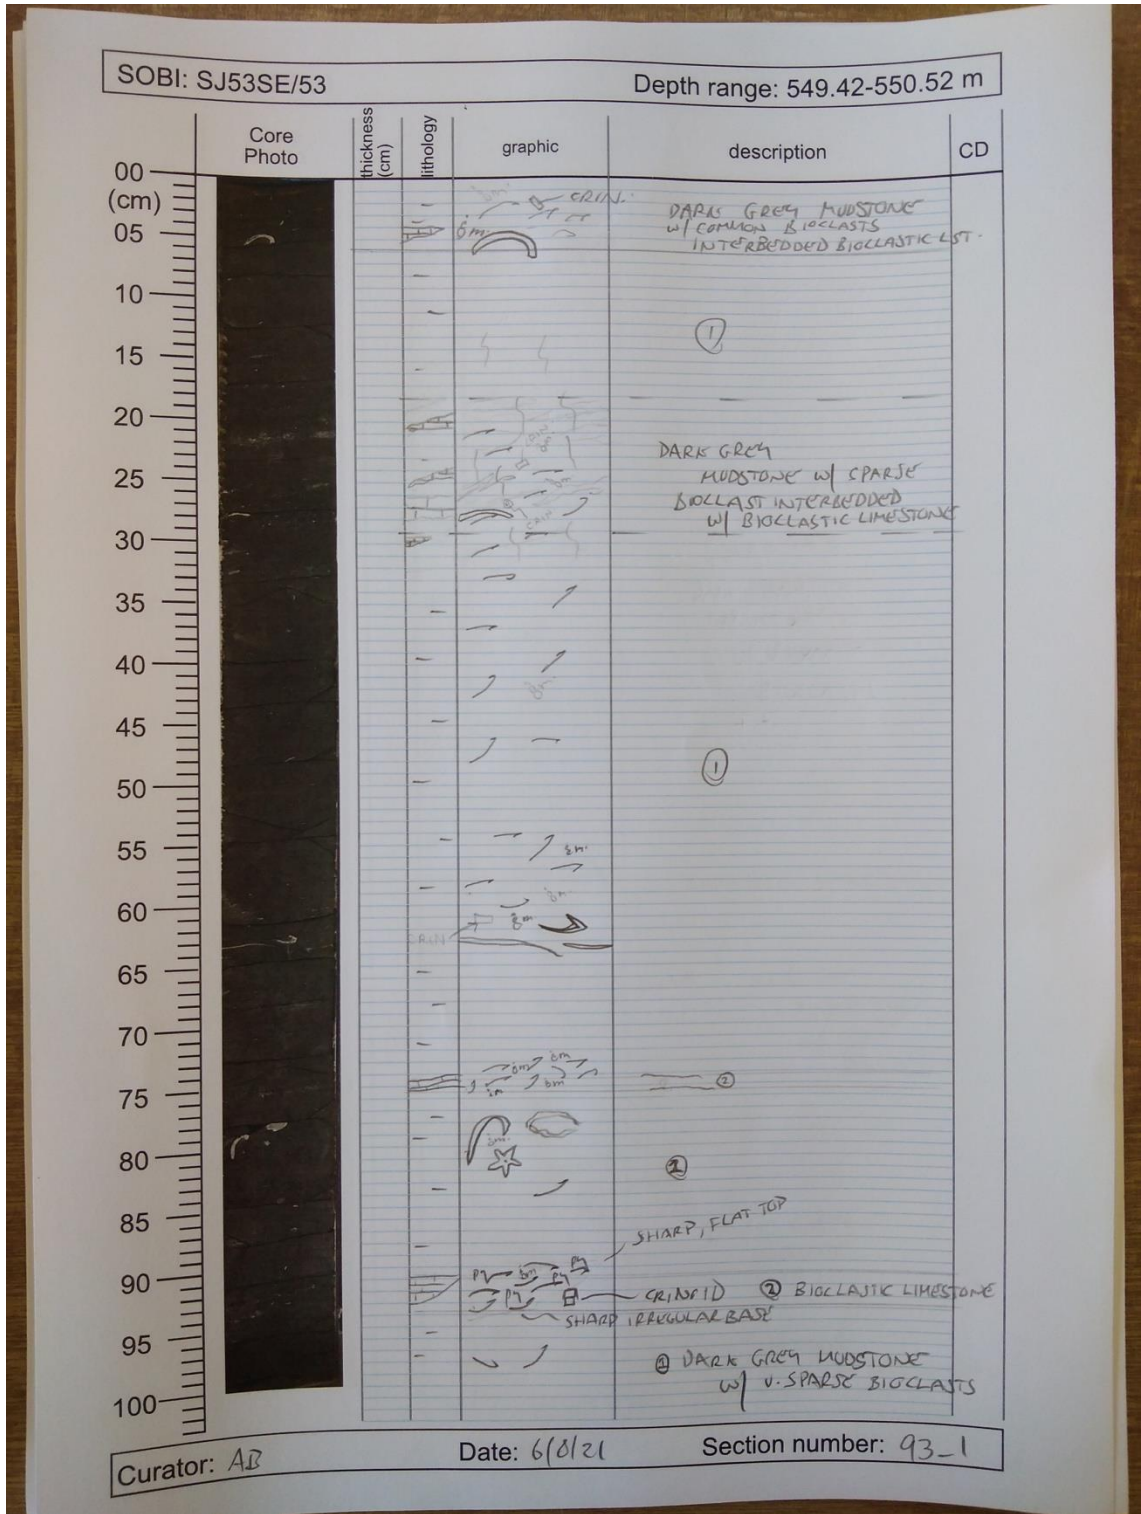 SOBI: SJ53SE/53
Depth range: 549.42-550.52 m
Core
Photo
thickness
(cm)
lithology
graphic
description
CD
00
(cm)
05
10
15
20
25
30
35
40
45
50
55
60
65
70
75
80
85
90
95
100
CRIN.
DARK GREY MUDSTONE
W/ COMMON BIOCLASTS
INTERBEDDED BIOCLASTIC LST.
1
CRIN
DARK GREY
MUDSTONE W/ SPARSE
BIOCLAST INTERBEDDED
W/ BIOCLASTIC LIMESTONE
CRIN
1
CRIN
2
1
SHARP, FLAT TOP
Py
Py
Py
Py
CRINOID
2 BIOCLASTIC LIMESTONE
SHARP IRREGULAR BASE
1 DARK GREY MUDSTONE
W/ V. SPARSE BIOCLASTS
Curator: AB
Date: 6/8/21
Section number: 93_1